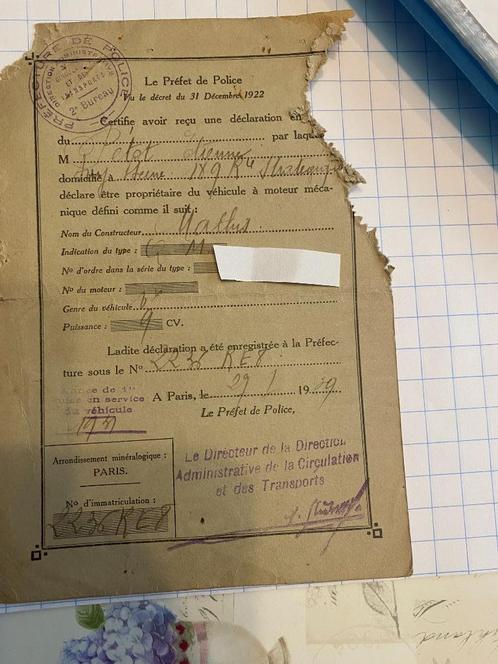 PRÉFECTURE DE POLICE
2e Bureau
Le Préfet de Police
Vu le décret du 31 Décembre 1922
Certifie avoir reçu une déclaration en
du par laqu
M Étienne
domicilié à Seine 189 Rte
déclare être propriétaire du véhicule à moteur méca-
nique défini comme il suit:
Nom du Constructeur Mathis
Indication du type :
No d'ordre dans la série du type :
No du moteur :
Genre du véhicule
Puissance : 9 CV.
Ladite déclaration a été enregistrée à la Préfec-
ture sous le No 2236 RE8
Année de 1re
mise en service
du véhicule
1931
A Paris, le 29 / 1939
Le Préfet de Police,
Le Directeur de la Direction
Administrative de la Circulation
et des Transports
Arrondissement minéralogique :
PARIS.
No d'immatriculation :
2236 RE8